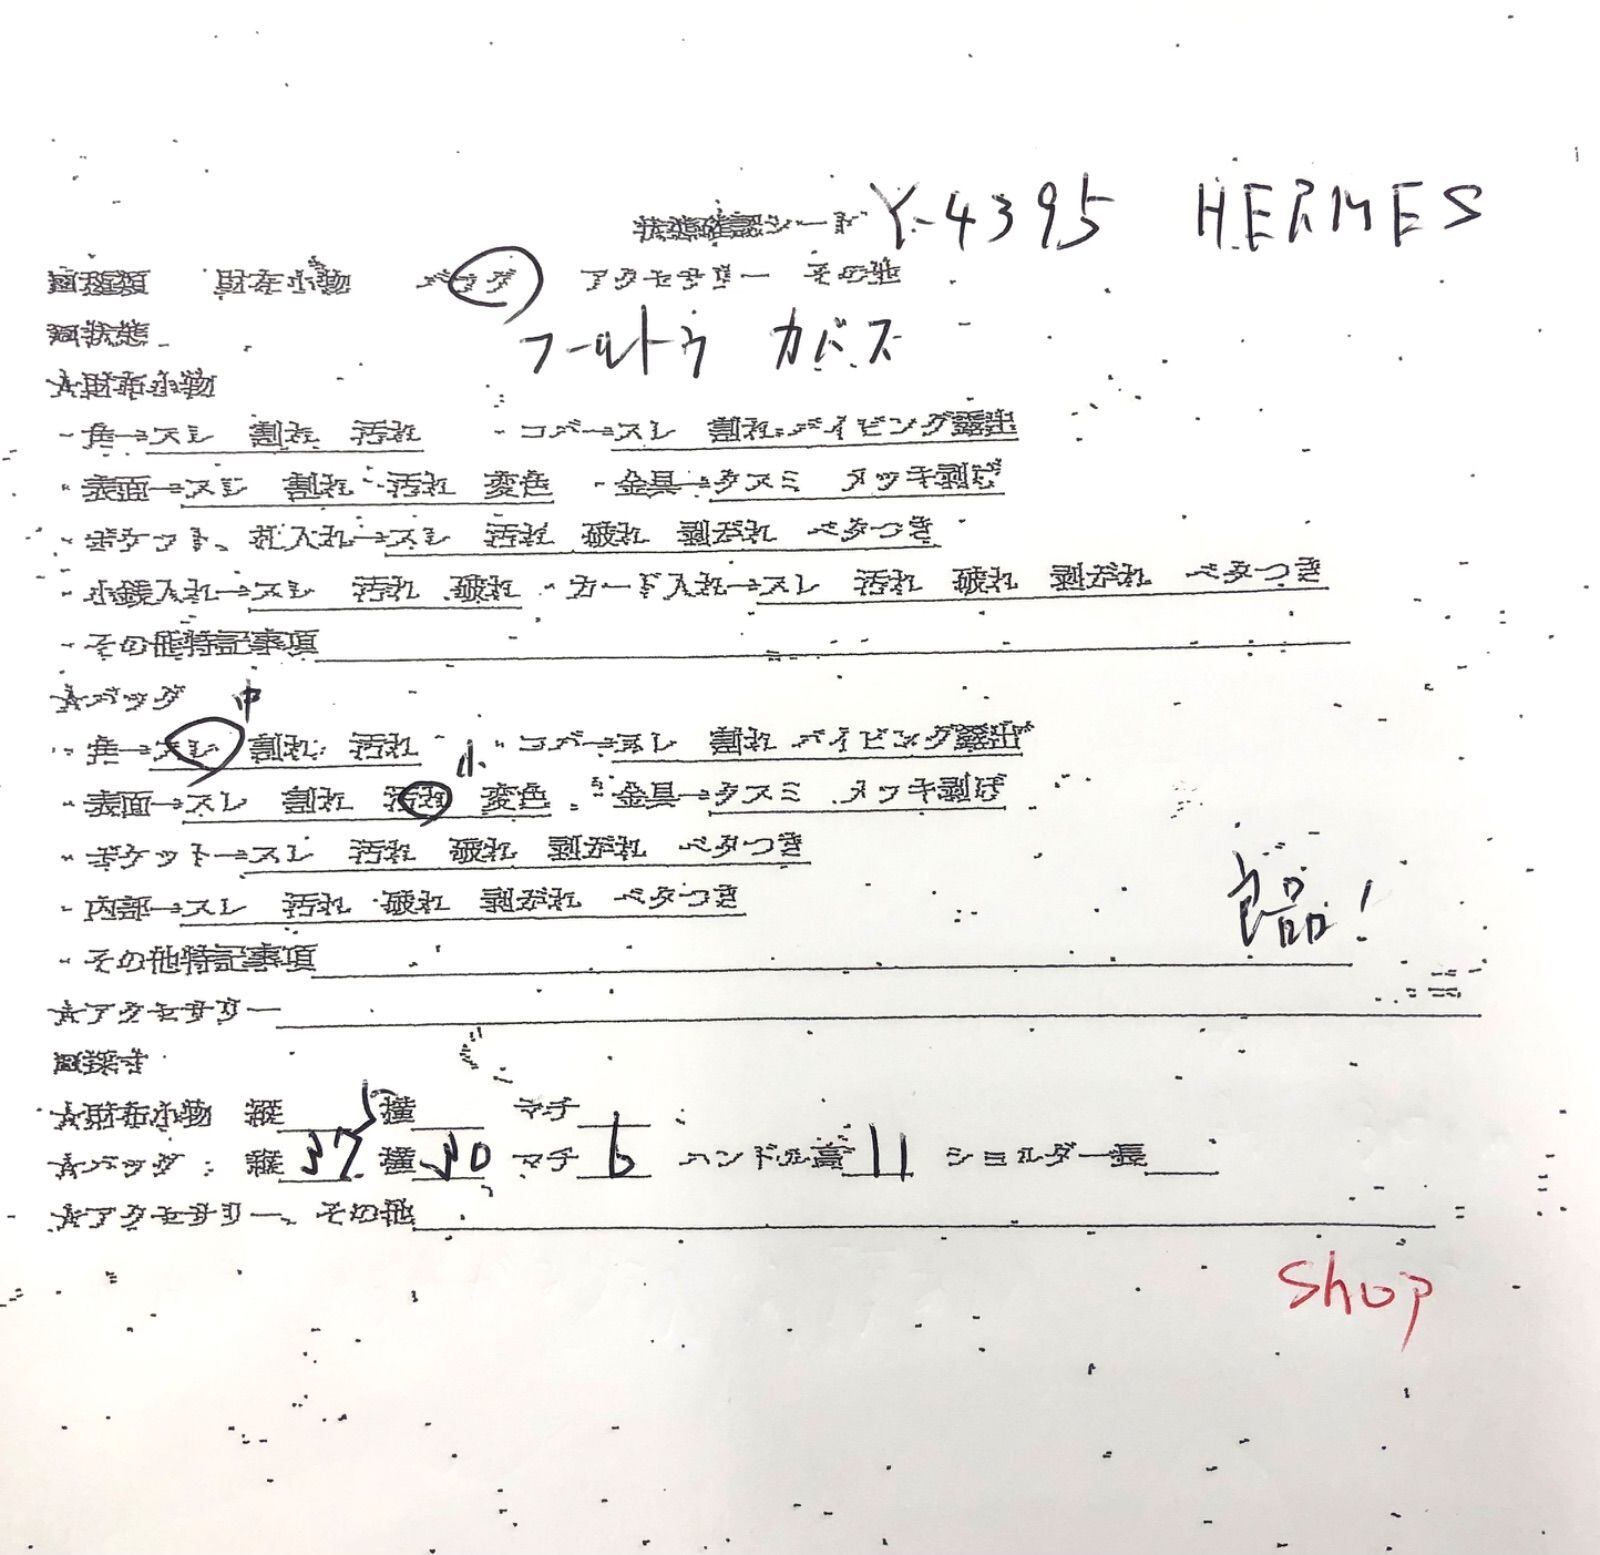 状態確認シート Y-4395 HERMES
□種類 財布小物 バッグ アクセサリー その他
□状態 フールトゥ カバス
★財布小物
・角→スレ 割れ 汚れ ・コバ→スレ 割れ パイピング露出
・表面→スレ 割れ 汚れ 変色 ・金具→クスミ メッキ剥げ
・ポケット、札入れ→スレ 汚れ 破れ 剥がれ ベタつき
・小銭入れ→スレ 汚れ 破れ ・カード入れ→スレ 汚れ 破れ 剥がれ ベタつき
・その他特記事項
★バッグ 中
・角→スレ 割れ 汚れ ・コバ→スレ 割れ パイピング露出
小
・表面→スレ 割れ 汚れ 変色 ・金具→クスミ メッキ剥げ
・ポケット→スレ 汚れ 破れ 剥がれ ベタつき
・内部→スレ 汚れ 破れ 剥がれ ベタつき
良品!
・その他特記事項
★アクセサリー
□採寸
★財布小物 縦 横 マチ
★バッグ 縦 37 横 30 マチ 6 ハンドル高 11 ショルダー長
★アクセサリー、その他
Shop